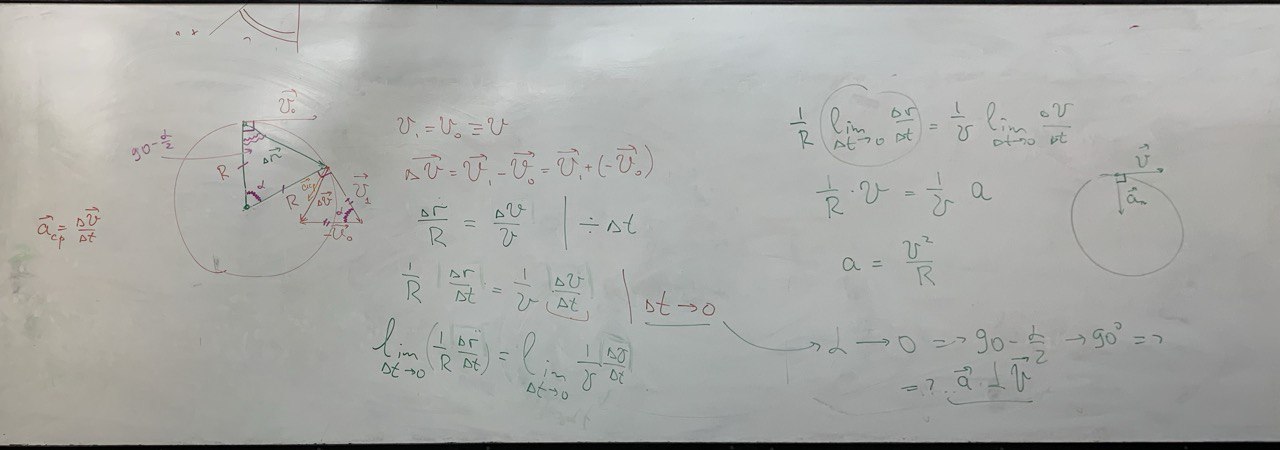 v⃗₀
90-α/2
R
Δr⃗
α
R
a⃗cp
Δv⃗
v⃗₁
α
-v⃗₀
a⃗cp = Δv⃗/Δt
v₁ = v₀ ≡ v
Δv⃗ = v⃗₁ - v⃗₀ = v⃗₁ + (-v⃗₀)
Δr/R = Δv/v | ÷ Δt
1/R Δr/Δt = 1/v Δv/Δt | Δt → 0
lim Δt→0 (1/R Δr/Δt) = lim Δt→0 1/v Δv/Δt
1/R lim Δt→0 Δr/Δt = 1/v lim Δt→0 Δv/Δt
1/R · v = 1/v a
a = v²/R
α → 0 => 90 - α/2 → 90° =>
=> a⃗ ⊥ v⃗
v⃗
a⃗n